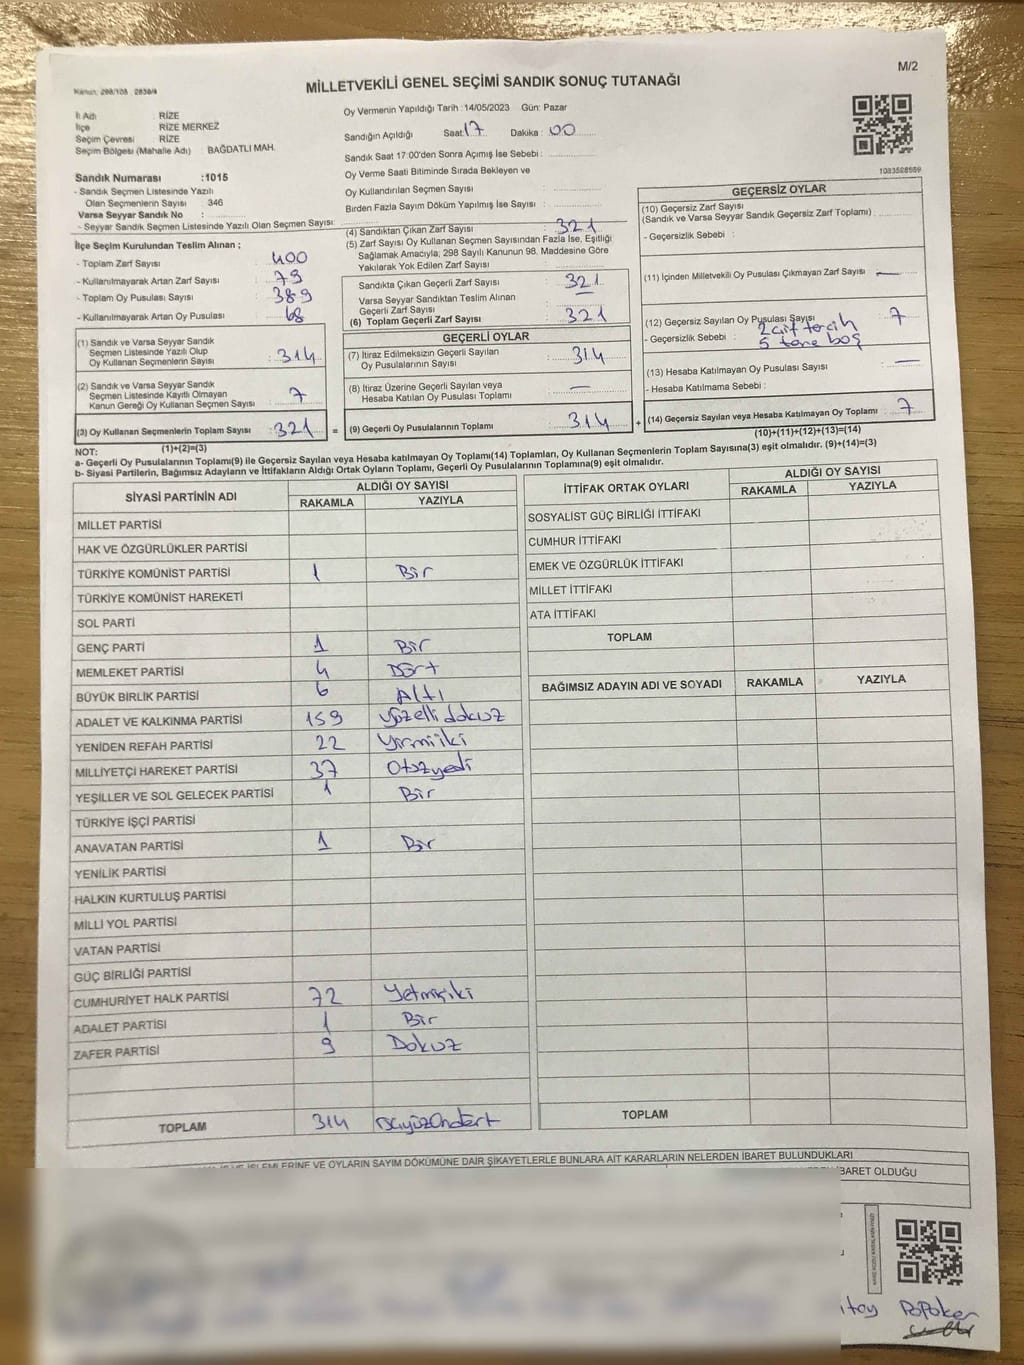 M/2
Kanun: 298/105 2839/4
MİLLETVEKİLİ GENEL SEÇİMİ SANDIK SONUÇ TUTANAĞI
İl Adı : RİZE
İlçe : RİZE MERKEZ
Seçim Çevresi : RİZE
Seçim Bölgesi (Mahalle Adı) : BAĞDATLI MAH.
Oy Vermenin Yapıldığı Tarih : 14/05/2023 Gün: Pazar
Sandığın Açıldığı Saat: 17 Dakika : 00
Sandık Saat 17:00'den Sonra Açımış İse Sebebi :
Oy Verme Saati Bitiminde Sırada Bekleyen ve
Oy Kullandırılan Seçmen Sayısı :
Birden Fazla Sayım Döküm Yapılmış İse Sayısı :
1083528559
Sandık Numarası :1015
- Sandık Seçmen Listesinde Yazılı
Olan Seçmenlerin Sayısı : 346
Varsa Seyyar Sandık No :
- Seyyar Sandık Seçmen Listesinde Yazılı Olan Seçmen Sayısı:
İlçe Seçim Kurulundan Teslim Alınan ;
- Toplam Zarf Sayısı : 400
- Kullanılmayarak Artan Zarf Sayısı : 79
- Toplam Oy Pusulası Sayısı : 389
- Kullanılmayarak Artan Oy Pusulası : 68
(1) Sandık ve Varsa Seyyar Sandık
Seçmen Listesinde Yazılı Olup
Oy Kullanan Seçmenlerin Sayısı : 314
(2) Sandık ve Varsa Seyyar Sandık
Seçmen Listesinde Kayıtlı Olmayan
Kanun Gereği Oy Kullanan Seçmen Sayısı : 7
(3) Oy Kullanan Seçmenlerin Toplam Sayısı : 321 =
(1)+(2)=(3)
(4) Sandıktan Çıkan Zarf Sayısı : 321
(5) Zarf Sayısı Oy Kullanan Seçmen Sayısından Fazla İse, Eşitliği
Sağlamak Amacıyla, 298 Sayılı Kanunun 98. Maddesine Göre
Yakılarak Yok Edilen Zarf Sayısı :
Sandıkta Çıkan Geçerli Zarf Sayısı : 321
Varsa Seyyar Sandıktan Teslim Alınan
Geçerli Zarf Sayısı : —
(6) Toplam Geçerli Zarf Sayısı : 321
GEÇERLİ OYLAR
(7) İtiraz Edilmeksizin Geçerli Sayılan
Oy Pusulalarının Sayısı : 314
(8) İtiraz Üzerine Geçerli Sayılan veya
Hesaba Katılan Oy Pusulası Toplamı : —
(9) Geçerli Oy Pusulalarının Toplamı : 314 +
GEÇERSİZ OYLAR
(10) Geçersiz Zarf Sayısı
(Sandık ve Varsa Seyyar Sandık Geçersiz Zarf Toplamı) :
- Geçersizlik Sebebi :
(11) İçinden Milletvekili Oy Pusulası Çıkmayan Zarf Sayısı : —
(12) Geçersiz Sayılan Oy Pusulası Sayısı : 7
- Geçersizlik Sebebi : 2 çift tercih
5 tane boş
(13) Hesaba Katılmayan Oy Pusulası Sayısı : —
- Hesaba Katılmama Sebebi :
(14) Geçersiz Sayılan veya Hesaba Katılmayan Oy Toplamı : 7
(10)+(11)+(12)+(13)=(14)
NOT:
a- Geçerli Oy Pusulalarının Toplamı(9) ile Geçersiz Sayılan veya Hesaba katılmayan Oy Toplamı(14) Toplamları, Oy Kullanan Seçmenlerin Toplam Sayısına(3) eşit olmalıdır. (9)+(14)=(3)
b- Siyasi Partilerin, Bağımsız Adayların ve İttifakların Aldığı Ortak Oyların Toplamı, Geçerli Oy Pusulalarının Toplamına(9) eşit olmalıdır.
SİYASİ PARTİNİN ADI ALDIĞI OY SAYISI
RAKAMLA YAZIYLA
MİLLET PARTİSİ
HAK VE ÖZGÜRLÜKLER PARTİSİ
TÜRKİYE KOMÜNİST PARTİSİ 1 Bir
TÜRKİYE KOMÜNİST HAREKETİ
SOL PARTİ
GENÇ PARTİ 1 Bir
MEMLEKET PARTİSİ 4 Dört
BÜYÜK BİRLİK PARTİSİ 6 Altı
ADALET VE KALKINMA PARTİSİ 159 yüzellidokuz
YENİDEN REFAH PARTİSİ 22 Yirmiiki
MİLLİYETÇİ HAREKET PARTİSİ 37 Otuzyedi
YEŞİLLER VE SOL GELECEK PARTİSİ 1 Bir
TÜRKİYE İŞÇİ PARTİSİ
ANAVATAN PARTİSİ 1 Bir
YENİLİK PARTİSİ
HALKIN KURTULUŞ PARTİSİ
MİLLİ YOL PARTİSİ
VATAN PARTİSİ
GÜÇ BİRLİĞİ PARTİSİ
CUMHURİYET HALK PARTİSİ 72 Yetmişiki
ADALET PARTİSİ 1 Bir
ZAFER PARTİSİ 9 Dokuz
TOPLAM 314
İTTİFAK ORTAK OYLARI ALDIĞI OY SAYISI
RAKAMLA YAZIYLA
SOSYALİST GÜÇ BİRLİĞİ İTTİFAKI
CUMHUR İTTİFAKI
EMEK VE ÖZGÜRLÜK İTTİFAKI
MİLLET İTTİFAKI
ATA İTTİFAKI
TOPLAM
BAĞIMSIZ ADAYIN ADI VE SOYADI RAKAMLA YAZIYLA
TOPLAM
VE OYLARIN SAYIM DÖKÜMÜNE DAİR ŞİKAYETLERLE BUNLARA AİT KARARLARIN NELERDEN İBARET BULUNDUKLARI
İBARET OLDUĞU